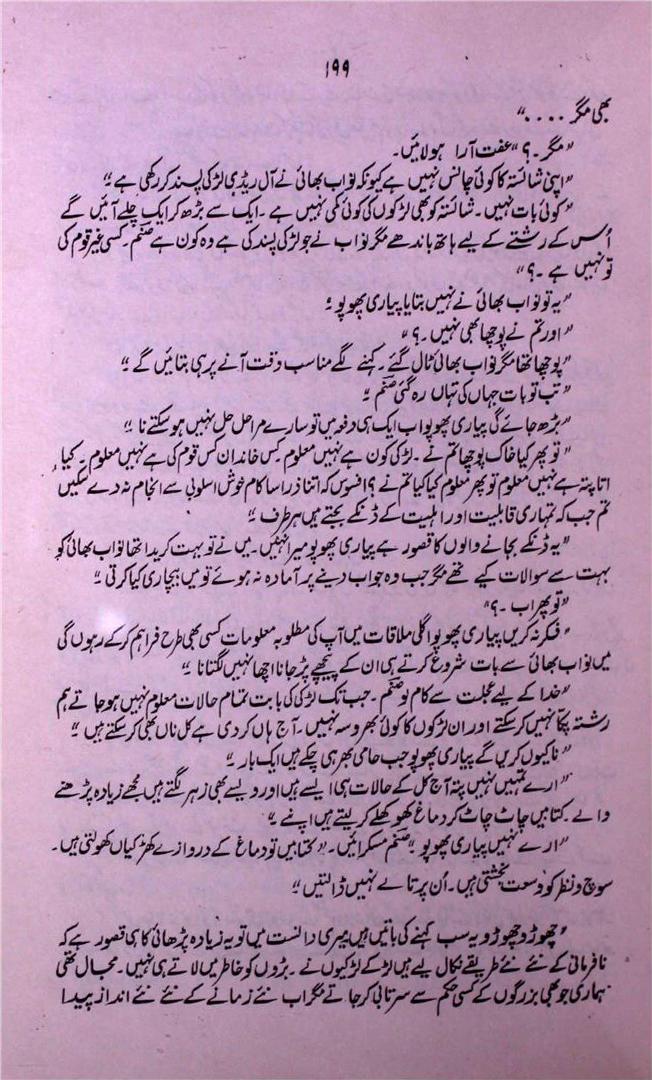 ۱۹۹
بھی مگر ....“
”مگر۔؟“ عفت آرا ہولائیں۔
”اپنی شائستہ کا کوئی چانس نہیں ہے کیونکہ نواب بھائی نے آل ریڈی لڑکی پسند کر رکھی ہے“
”کوئی بات نہیں۔ شائستہ کو بھی لڑکوں کی کوئی کمی نہیں ہے۔ ایک سے بڑھ کر ایک چلے آئیں گے
اُس کے رشتے کے لیے ہاتھ باندھے مگر نواب نے جو لڑکی پسند کی ہے وہ کون ہے صنم۔ کسی غیر قوم کی
تو نہیں ہے۔؟“
”یہ تو نواب بھائی نے نہیں بتایا پیاری پھوپو“
”اور تم نے پوچھا بھی نہیں۔؟“
”پوچھا تھا مگر نواب بھائی ٹال گئے۔ کہنے لگے مناسب وقت آنے پر ہی بتائیں گے“
”تب تو بات جہاں کی تہاں رہ گئی صنم“
”بڑھ جائے گی پیاری پھوپو اب ایک ہی دفعہ میں تو سارے مراحل حل نہیں ہو سکتے نا“
”تو پھر کیا خاک پوچھا تم نے۔ لڑکی کون ہے نہیں معلوم کس خاندان کس قوم کی ہے نہیں معلوم۔ کیا
اتا پتہ ہے نہیں معلوم تو پھر معلوم کیا کیا تم نے؟ افسوس کہ اتنا ذرا سا کام خوش اسلوبی سے انجام نہ دے سکیں
تم جب کہ تمہاری قابلیت اور اہلیت کے ڈنکے بجتے ہیں ہر طرف“
”یہ ڈنکے بجانے والوں کا قصور ہے پیاری پھوپو میرا نہیں۔ میں نے تو بہت کریدا تھا نواب بھائی کو
بہت سے سوالات کیے تھے مگر جب وہ جواب دینے پر آمادہ نہ ہوئے تو میں بیچاری کیا کرتی“
”تو پھر اب۔؟“
”فکر نہ کریں پیاری پھوپو اگلی ملاقات میں آپ کی مطلوبہ معلومات کسی بھی طرح فراہم کر کے رہوں گی
میں نواب بھائی سے بات شروع کرتے ہی ان کے پیچھے پڑ جانا اچھا نہیں لگتا نا“
”خدا کے لیے عجلت سے کام لو صنم۔ جب تک لڑکی کی بابت تمام حالات معلوم نہیں ہو جاتے ہم
رشتہ پکا نہیں کر سکتے اور ان لڑکوں کا کوئی بھروسہ نہیں۔ آج ہاں کر دی ہے کل ناں بھی کر سکتے ہیں“
”نا کیوں کریں گے پیاری پھوپو جب حامی بھر ہی چکے ہیں ایک بار“
”ارے تمہیں نہیں پتہ آج کل کے حالات ہی ایسے ہیں اور ویسے بھی زہر لگتے ہیں مجھے زیادہ پڑھنے
والے۔ کتابیں چاٹ چاٹ کر دماغ کھوکھلے کر لیتے ہیں اپنے“
”ارے نہیں پیاری پھوپو“ صنم مسکرائیں۔ ”کتابیں تو دماغ کے دروازے کھڑکیاں کھولتی ہیں۔
سوچ و نظر کو وسعت بخشتی ہیں۔ اُن پر تالے نہیں ڈالتیں“
”چھوڑو چھوڑو یہ سب کہنے کی باتیں ہیں میری دانست میں تو یہ زیادہ پڑھائی کا ہی قصور ہے کہ
نافرمانی کے نئے نئے طریقے نکال لیے ہیں لڑکے لڑکیوں نے۔ بڑوں کو خاطر میں لاتے ہی نہیں۔ مجال تھی
ہماری جو بھی بزرگوں کے کسی حکم سے سرتابی کر جاتے مگر اب نئے زمانے کے نئے نئے انداز پیدا